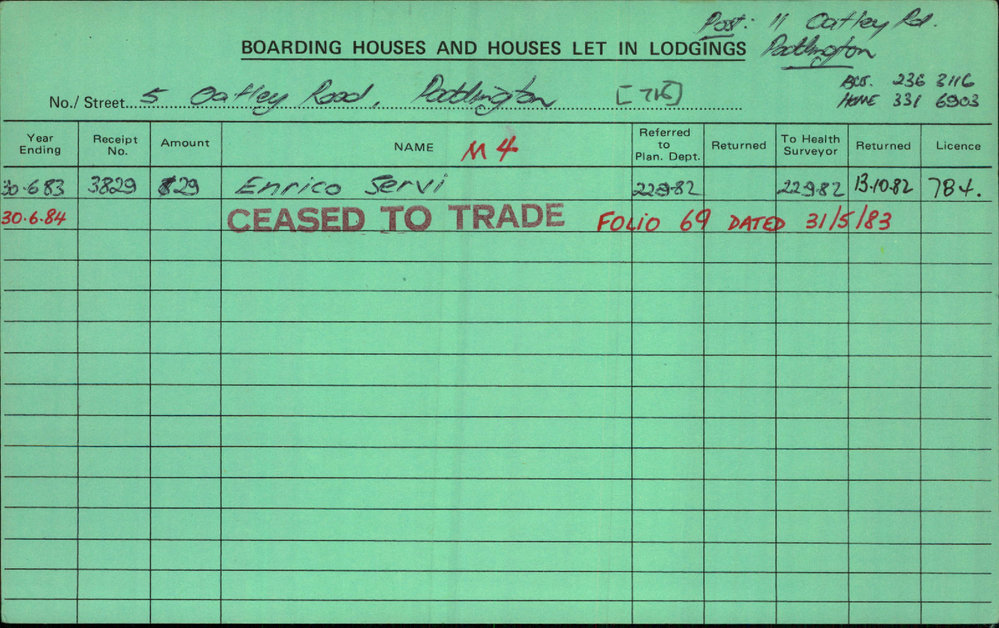 Post: 11 Oatley Rd.
Paddington
BOARDING HOUSES AND HOUSES LET IN LODGINGS
BUS. 236 3116
HOME 331 6903
No./Street... 5 Oatley Road, Paddington [715]
Year Ending Receipt No. Amount NAME M4 Referred to Plan. Dept. Returned To Health Surveyor Returned Licence
30.6.83 3829 $29 Enrico Servi 22.9.82 22.9.82 13.10.82 784.
30.6.84 CEASED TO TRADE FOLIO 69 DATED 31/5/83